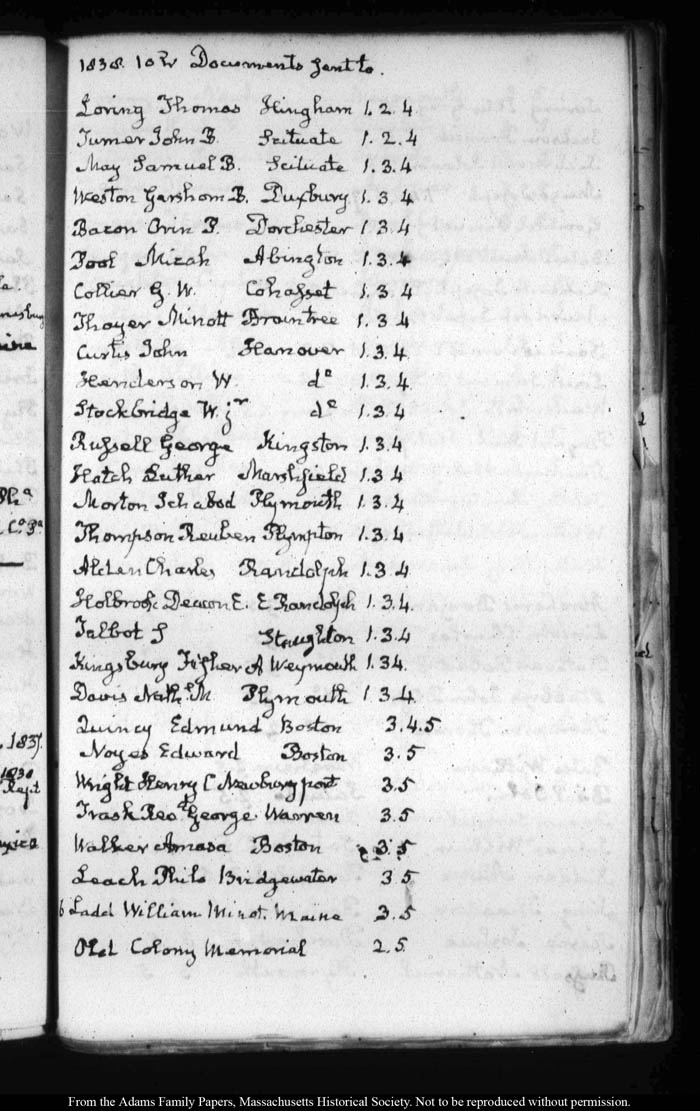 1838. 10 Documents sent to.
Loring Thomas Hingham 1. 2. 4
Turner John B. Scituate 1. 2. 4
May Samuel B. Scituate 1. 3. 4
Weston Garshom B. Duxbury 1. 3. 4
Bacon Orin P. Dorchester 1. 3. 4
Pool Micah Abington 1. 3. 4
Collier G. W. Cohasset 1. 3. 4
Thayer Minott Braintree 1. 3 4
Curtis John Hanover 1. 3. 4
Henderson W. do 1. 3. 4.
Stockbridge W. jr do 1. 3 4
Russell George Kingston 1. 3. 4
Hatch Luther Marshfield 1. 3 4
Morton Ichabod Plymouth 1. 3. 4
Thompson Reuben Plympton 1. 3. 4
Alden Charles Randolph 1. 3 4
Holbrook Deacon E. E Randolph 1. 3. 4.
Talbot Stoughton 1. 3. 4
Kingsbury Fisher A Weymouth 1. 3 4.
Davis Nathl M Plymouth 1. 3. 4
Quincy Edmund Boston 3. 4. 5
Noyes Edward Boston 3. 5
Wright Henry C Newburyport 3.5
Trask Revd George Warren 3.5
Walker Amasa Boston 3. 5
Leach Philo Bridgewater 3 5
6 Ladd William Minot. Maine 3. 5
Old Colony Memorial 2. 5
1837.
1838
Rept.
From the Adams Family Papers, Massachusetts Historical Society. Not to be reproduced without permission.